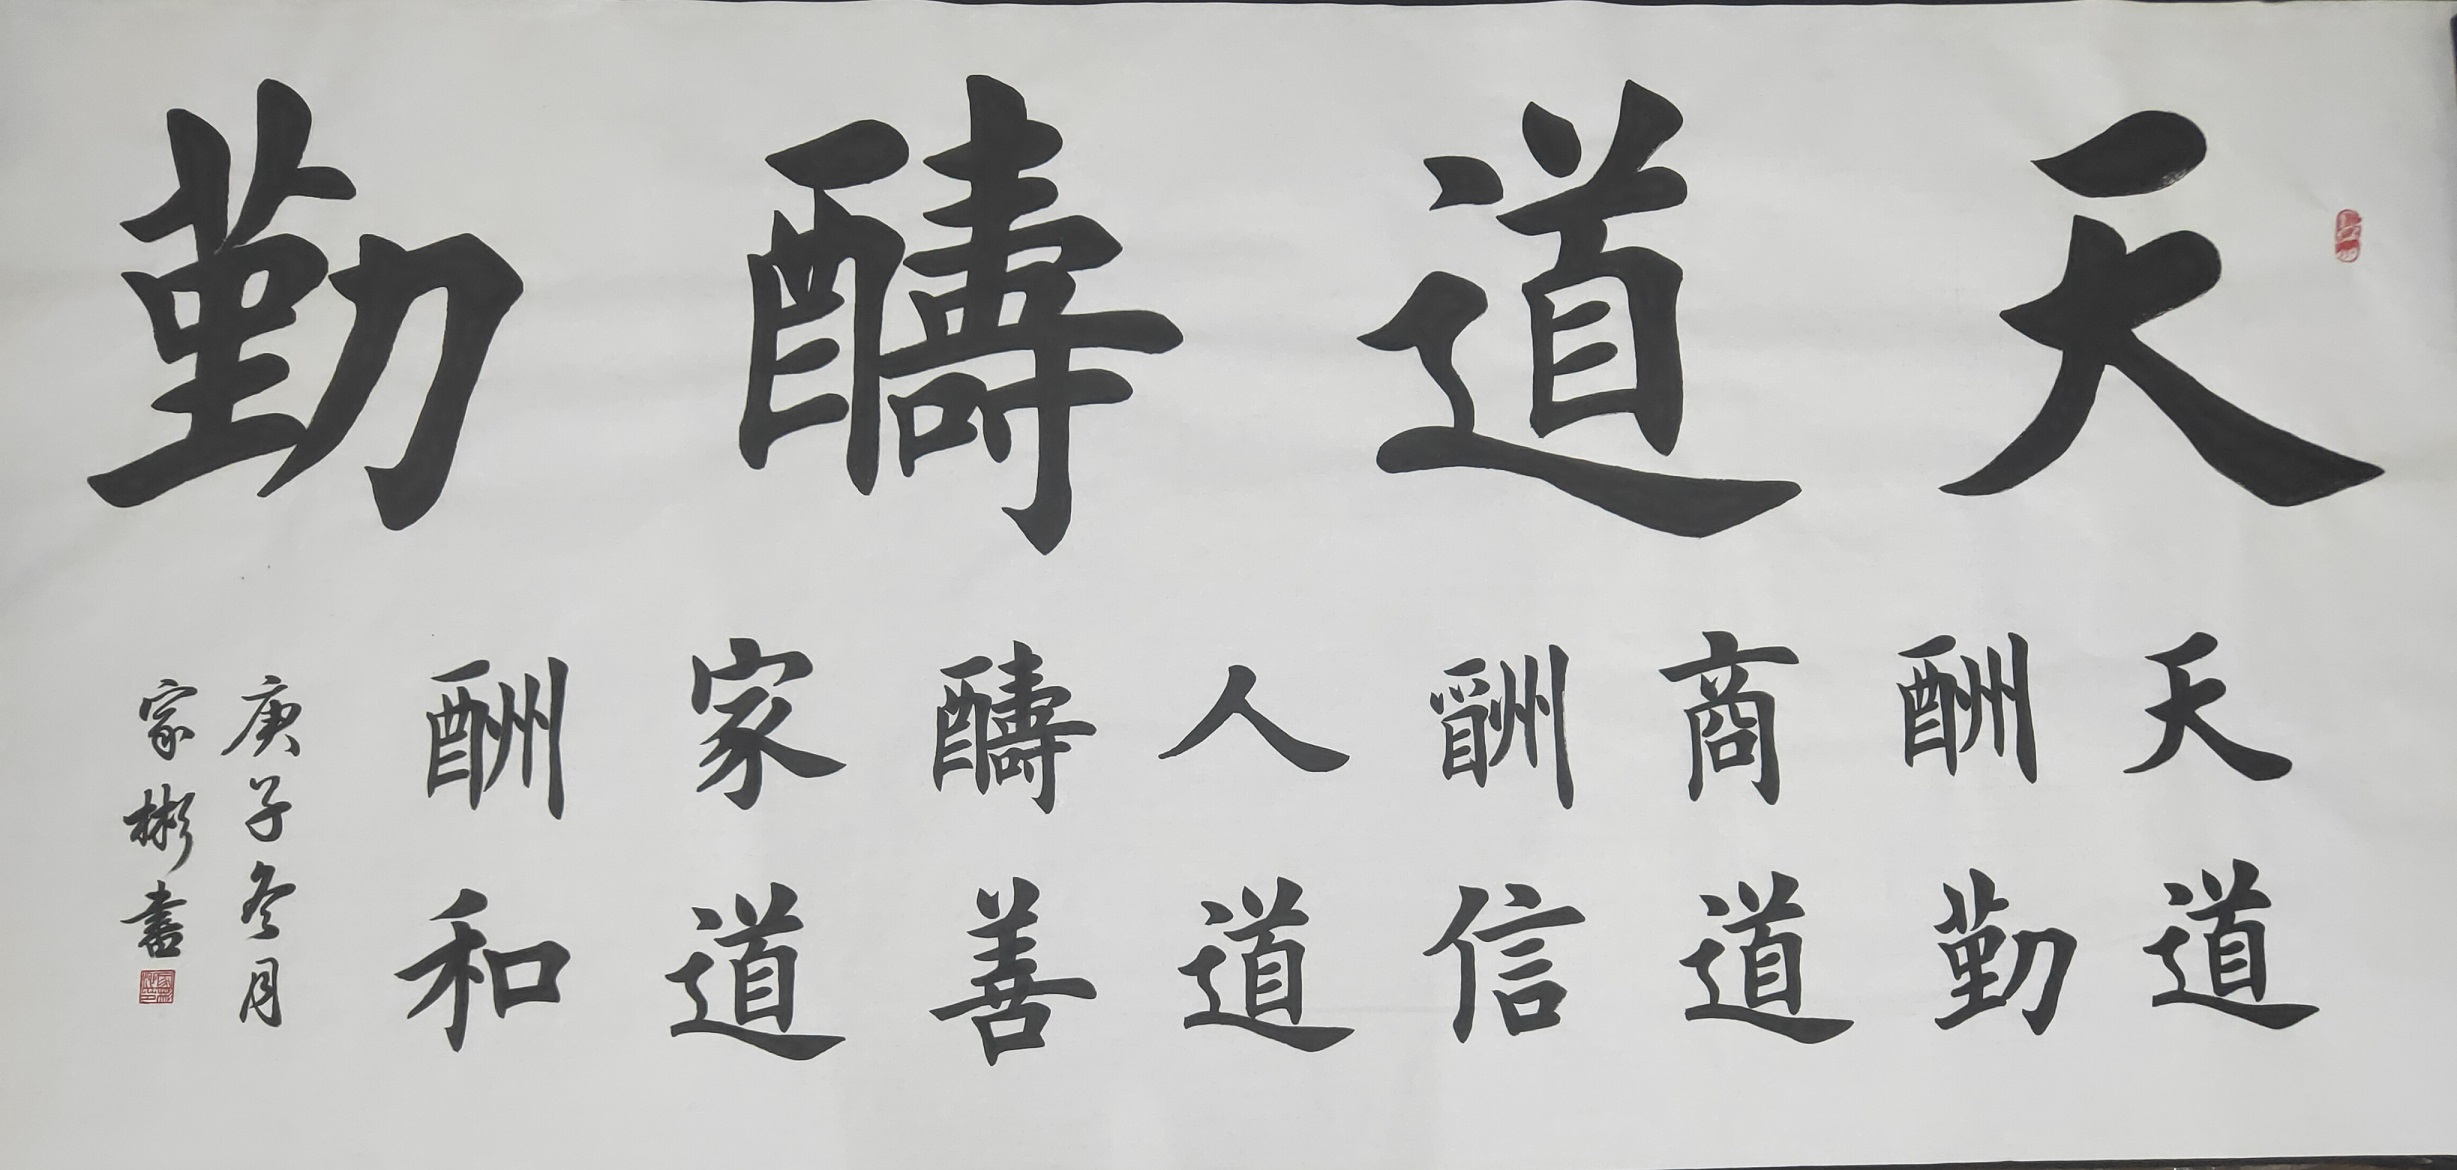 天道醻勤
天道
酬勤
商道
酬信
人道
醻善
家道
酬和
庚子冬月
家彬書